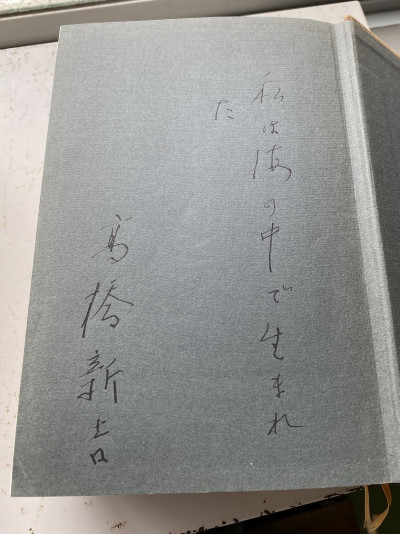 私は海の中で生まれ
た
高橋新吉